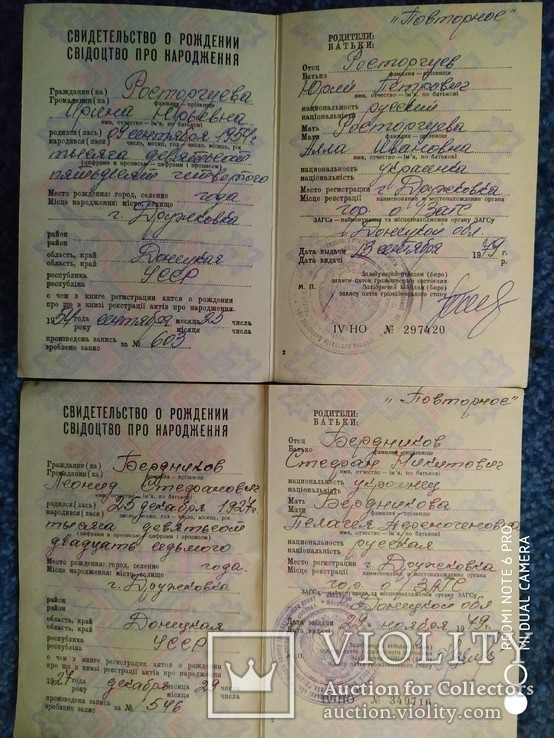 СВИДЕТЕЛЬСТВО О РОЖДЕНИИ
СВІДОЦТВО ПРО НАРОДЖЕННЯ
Гражданин (ка) Расторгуева
Громадянин (ка)
фамилия — прізвище
Ирина Юрьевна
имя, отчество — ім'я, по батькові
родился (лась) 04 сентября 1954 г.
народився (лася)
число, месяц, год — число, місяць, рік
тысяча девятьсот
(цифрами и прописью — цифрами і прописом)
пятьдесят четвертого
года
Место рождения: город, селение
Місце народження: місто, селище
г. Дружковка
район
район
область, край Донецкая
область, край
республика УССР
республіка
о чем в книге регистрации актов о рождении
про що в книзі реєстрації актів про народження
1954 года сентября месяца 23 числа
року місяця числа
произведена запись за № 603
зроблено запис
"Повторное"
РОДИТЕЛИ:
БАТЬКИ:
Отец Расторгуев
Батько
фамилия — прізвище
Юрий Петрович
имя, отчество — ім'я, по батькові
национальность русский
національність
Мать Расторгуева
Мати
фамилия — прізвище
Алла Ивановна
имя, отчество — ім'я, по батькові
национальность украинка
національність
Место регистрации г. Дружковка
Місце реєстрації
наименование и местонахождение органа
гор. ЗАГС
ЗАГСа — найменування та місцезнаходження органу ЗАГСу
Донецкой обл.
Дата выдачи 13 сентября 1979 г.
Дата видачі р.
М. П.
Заведующий отделом (бюро)
записи актов гражданского состояния
Завідуючий відділом (бюро)
запису актів громадянського стану
IV-НО № 297420
2
СВИДЕТЕЛЬСТВО О РОЖДЕНИИ
СВІДОЦТВО ПРО НАРОДЖЕННЯ
Гражданин (ка) Бердников
Громадянин (ка)
фамилия — прізвище
Леонид Стефанович
имя, отчество — ім'я, по батькові
родился (лась) 25 декабря 1927 г.
народився (лася)
число, месяц, год — число, місяць, рік
тысяча девятьсот
(цифрами и прописью — цифрами і прописом)
двадцать седьмого
года.
Место рождения: город, селение
Місце народження: місто, селище
г. Дружковка
район
район
область, край Донецкая
область, край
республика УССР
республіка
о чем в книге регистрации актов о рождении
про що в книзі реєстрації актів про народження
1927 года декабря месяца 29 числа
року місяця числа
произведена запись за № 546
зроблено запис
"Повторное"
РОДИТЕЛИ:
БАТЬКИ:
Отец Бердников
Батько
фамилия — прізвище
Стефан Никитович
имя, отчество — ім'я, по батькові
национальность украинец
національність
Мать Бердникова
Мати
фамилия — прізвище
Пелагея
имя, отчество — ім'я, по батькові
национальность русская
національність
Место регистрации г. Дружковка
Місце реєстрації
наименование и местонахождение органа
гор. ЗАГС
Донецкой обл
Дата выдачи 29 ноября 1979
Дата видачі
М. П.
IV-НО № 349716
REDMI NOTE 6 PRO
MI DUAL CAMERA
VIOLITY
Auction for Collectors
auction.violity.com